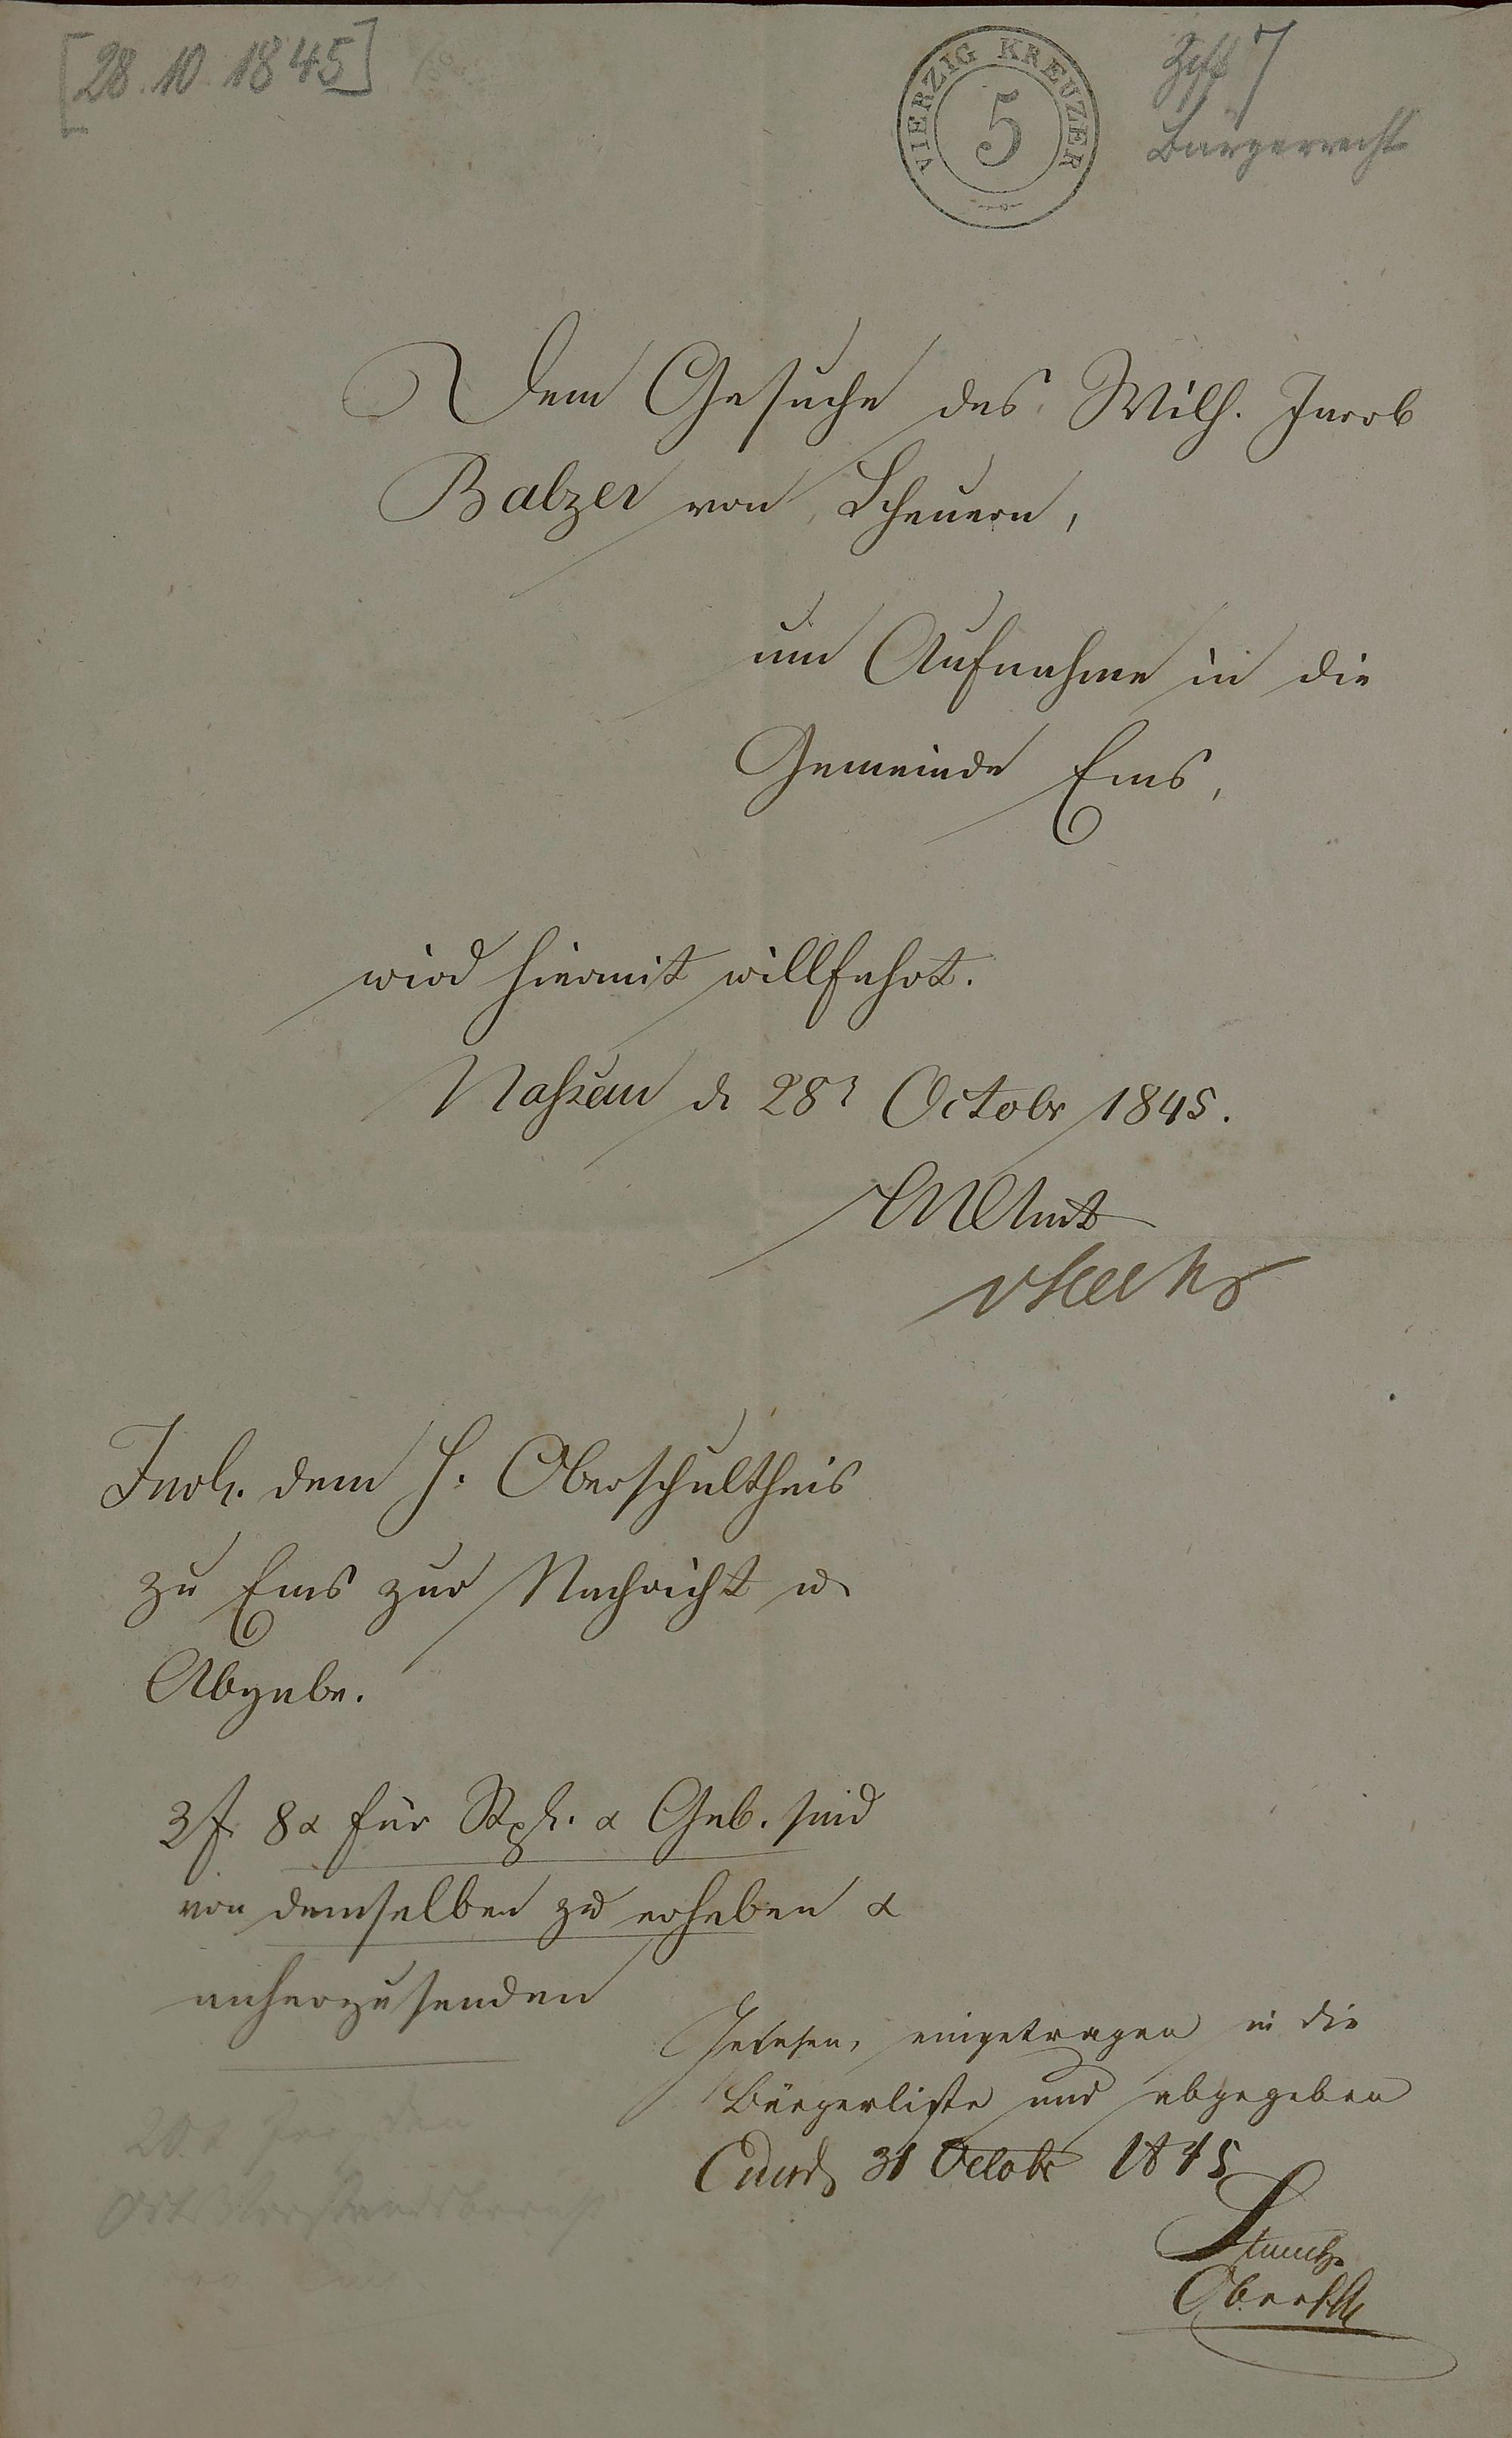 [28.10.1845]
VIERZIG KREUZER
5
Ziff 7
Bürgerrecht
Dem Gesuche des Wilh. Jacob
Balzer von Scheuern,
um Aufnahme in die
Gemeinde Ems,
wird hiermit willfahrt.
Naßau d 28r Octobr 1845.
HNAmt
dem H. Oberschultheis
zu Ems zur Nachricht u
Abgabe.
3f 8x für Stpl. & Geb. sind
von demselben zu erheben &
anherzusenden
Gelesen, eingetragen in die
Bürgerliste und abgegeben
31 Octobr 1845
Obersch